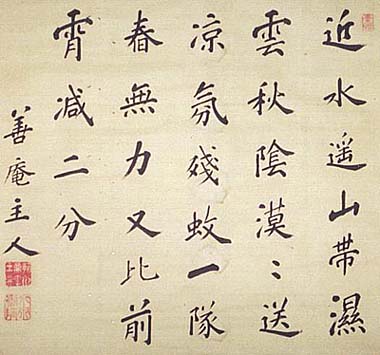 近水遥山帯濕
雲秋陰漠〻送
凉氛殘蚊一隊
春無力又比前
宵减二分
善庵主人